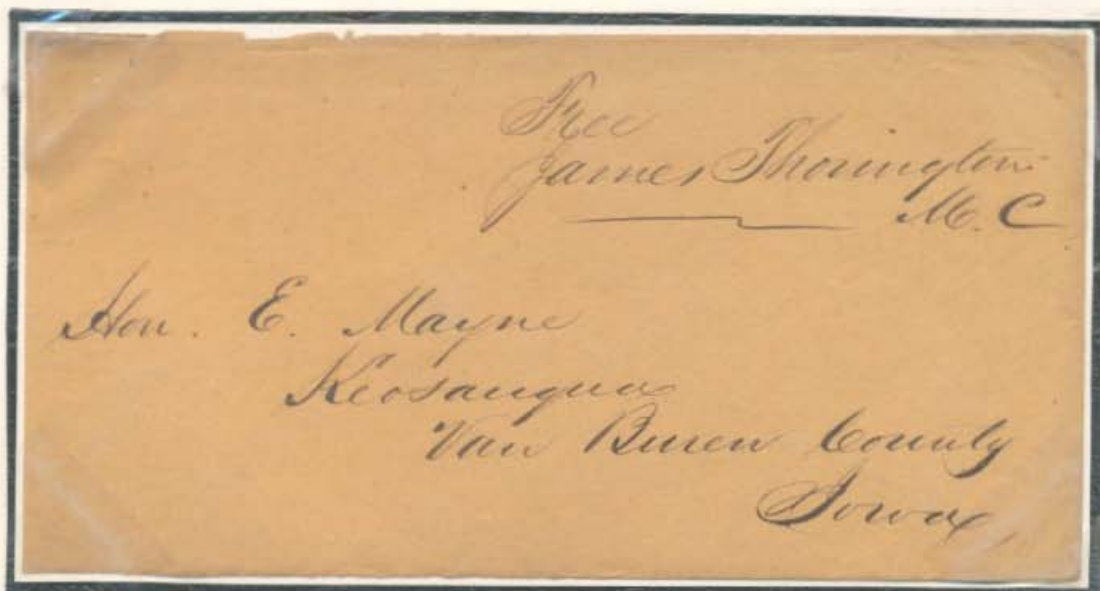 Free
James Thorington
M. C.
Hon. E. Mayne
Keosauqua
Van Buren County
Iowa